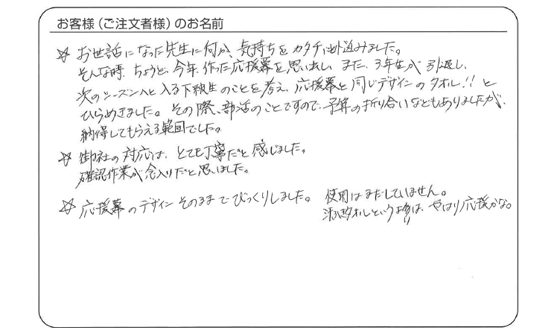 お客様（ご注文者様）のお名前
☆ お世話になった先生に何か、気持ちをカタチに
そんな時、ちょうど、今年、作った応援幕を思い出し、また、3年生が引退し、
次のシーズンへと入る下級生のことを考え、応援幕と同じデザインのタオル!!と
ひらめきました。その際、部活のことですので、予算の折り合いなどもありましたが、
納得してもらえる範囲でした。
☆ 御社の対応は、とても丁寧だと感じました。
確認作業が念入りだと思いました。
☆ 応援幕のデザインそのままでびっくりしました。 使用はまだしていません。
タオルという やはり応援かな。